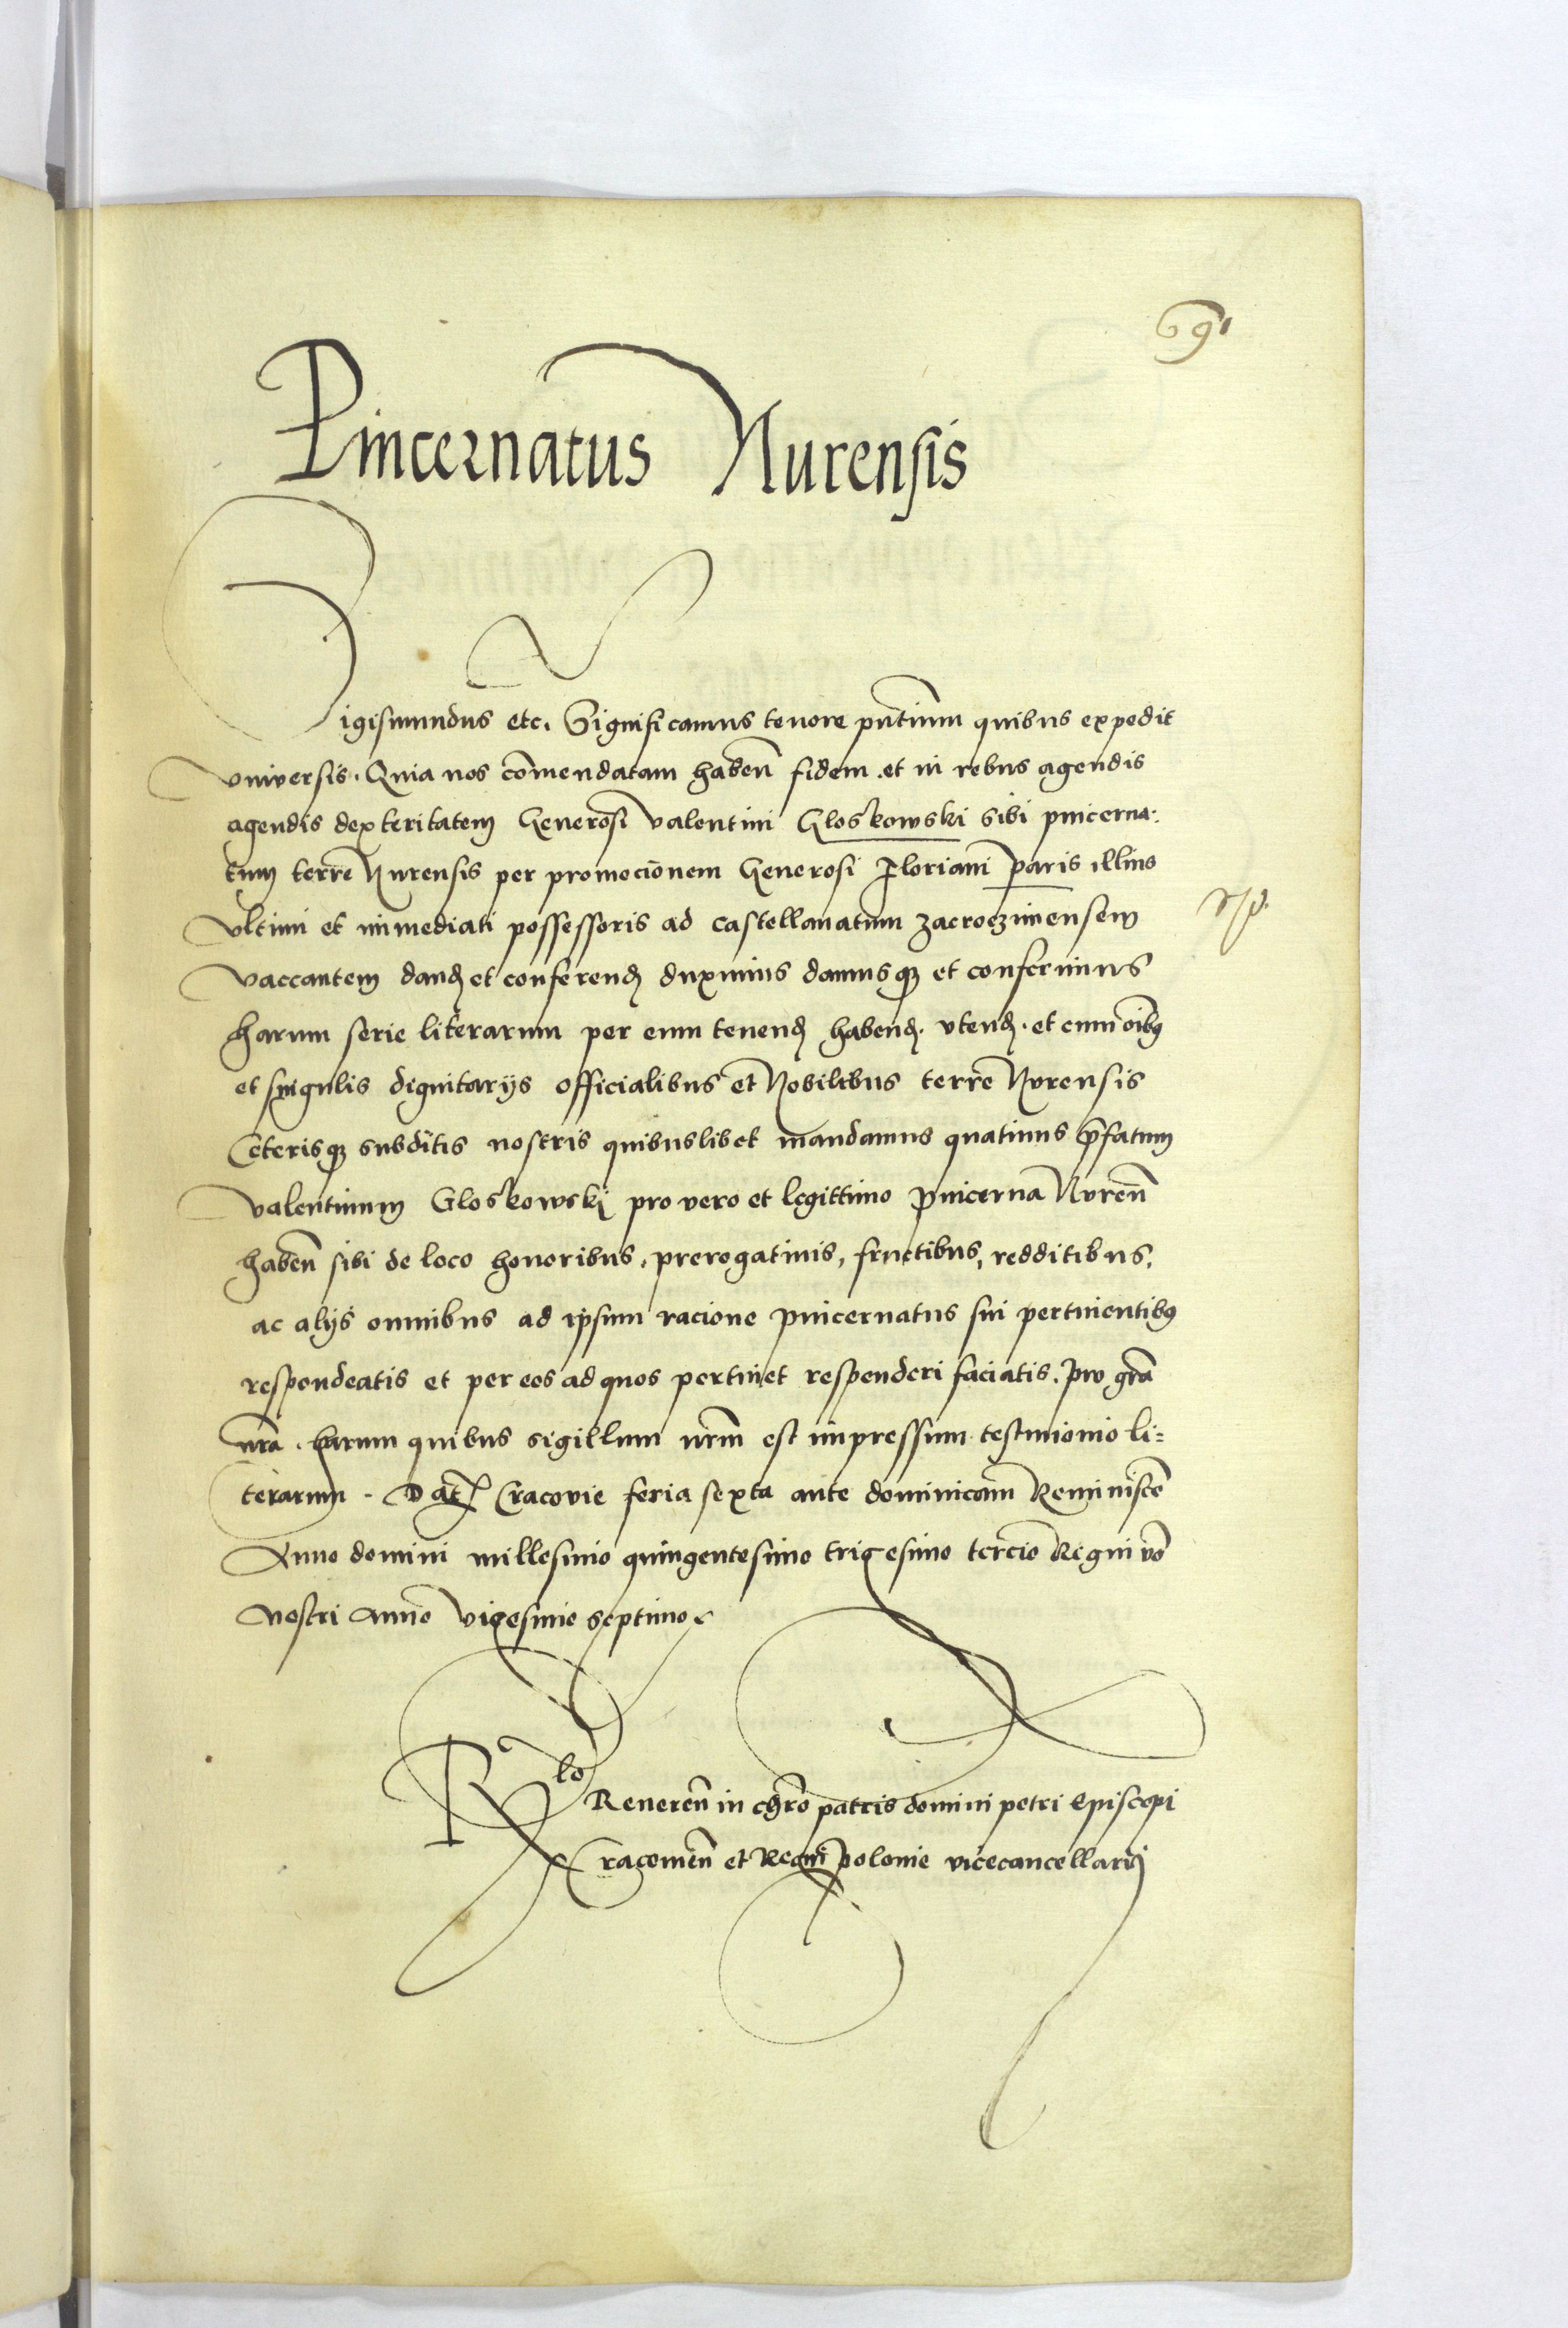 69
Pincernatus Nurensis
Sigismundus etc. Significamus tenore pn̄tium quibus expedit
vniversis. Quia nos com̄endatam haben̄ fidem et in rebus agendis
agendis dexteritatem Generosi Valentini Gloskowski sibi pincerna:
tum terre Nurensis per promocionem Generosi Floriani paris illius
vltimi et immediati possessoris ad castellanatum zacroczimensem
vaccantem danḋ et conferenḋ duximus damusqꝫ et conferimus
harum serie literarum per eum tenenḋ habenḋ. vtenḋ. et cum oībꝰ
et singulis dignitarijs officialibus et Nobilibus terre Nurensis
Ceterisqꝫ subditis nostris quibuslibet mandamus quatinus p̄fatum
Valentinum Gloskowskj pro vero et legittimo pincerna Nuren̄
haben̄ sibi de loco honoribus, prerogatiuis, fructibus, redditibus,
ac alijs omnibus ad ipsum racione pincernatus sui pertinentibꝰ
respondeatis et per eos ad quos pertinet responderi faciatis. pro gr̄a
nr̄a. harum quibus sigillum nr̄m est impressum testimonio li=
terarum. Dat̄ Cracovie feria sexta ante dominicam Reminiscē
Anno domini millesimo quingentesimo trigesimo tercio Regni vō
Nostri Anno vigesimo septimo.
Rlo
Reueren̄ in chrō patris domini petri Episcopi
Cracouien̄ et Regni polonie vicecancellarij